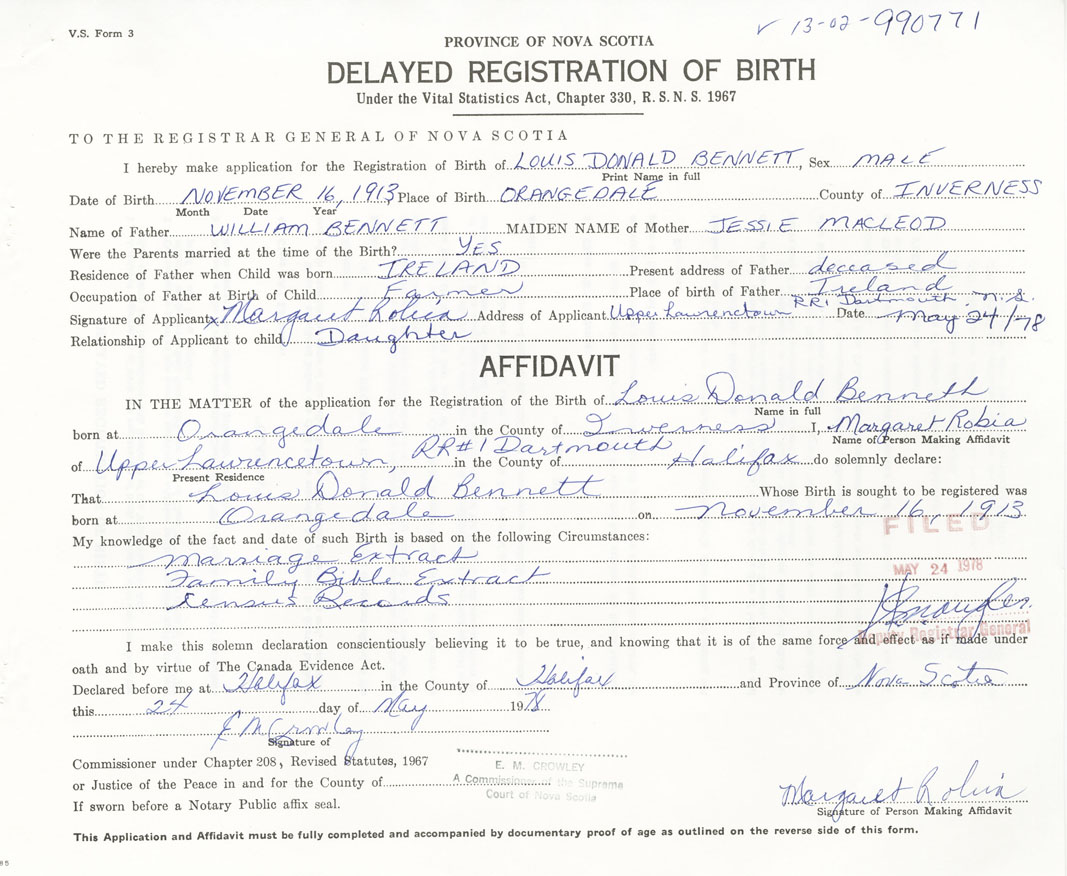 V.S. Form 3
✓ 13-02-990771
PROVINCE OF NOVA SCOTIA
DELAYED REGISTRATION OF BIRTH
Under the Vital Statistics Act, Chapter 330, R. S. N. S. 1967
TO THE REGISTRAR GENERAL OF NOVA SCOTIA
I hereby make application for the Registration of Birth of LOUIS DONALD BENNETT, Sex MALE
Print Name in full
Date of Birth NOVEMBER 16, 1913 Place of Birth ORANGEDALE County of INVERNESS
Month Date Year
Name of Father WILLIAM BENNETT MAIDEN NAME of Mother JESSIE MACLEOD
Were the Parents married at the time of the Birth? YES
Residence of Father when Child was born IRELAND Present address of Father deceased
Occupation of Father at Birth of Child Farmer Place of birth of Father Ireland
RR1 Dartmouth, N.S.
Signature of Applicant x Margaret Robia Address of Applicant Upper Lawrencetown Date May 24/78
Relationship of Applicant to child Daughter
AFFIDAVIT
IN THE MATTER of the application for the Registration of the Birth of Louis Donald Bennett
Name in full
born at Orangedale in the County of Inverness I, Margaret Robia
Name of Person Making Affidavit
of Upper Lawrencetown, RR#1 Dartmouth in the County of Halifax do solemnly declare:
Present Residence
That Louis Donald Bennett Whose Birth is sought to be registered was
born at Orangedale on November 16, 1913
FILED
My knowledge of the fact and date of such Birth is based on the following Circumstances:
Marriage Extract
Family Bible Extract
MAY 24 1978
Census Records
Deputy Registrar General
I make this solemn declaration conscientiously believing it to be true, and knowing that it is of the same force and effect as if made under
oath and by virtue of The Canada Evidence Act.
Declared before me at Halifax in the County of Halifax and Province of Nova Scotia
this 24 day of May 1978
E M Crowley
Signature of
Commissioner under Chapter 208, Revised Statutes, 1967
E. M. CROWLEY
or Justice of the Peace in and for the County of
A Commissioner of the Supreme
Court of Nova Scotia
Margaret Robia
If sworn before a Notary Public affix seal.
Signature of Person Making Affidavit
This Application and Affidavit must be fully completed and accompanied by documentary proof of age as outlined on the reverse side of this form.